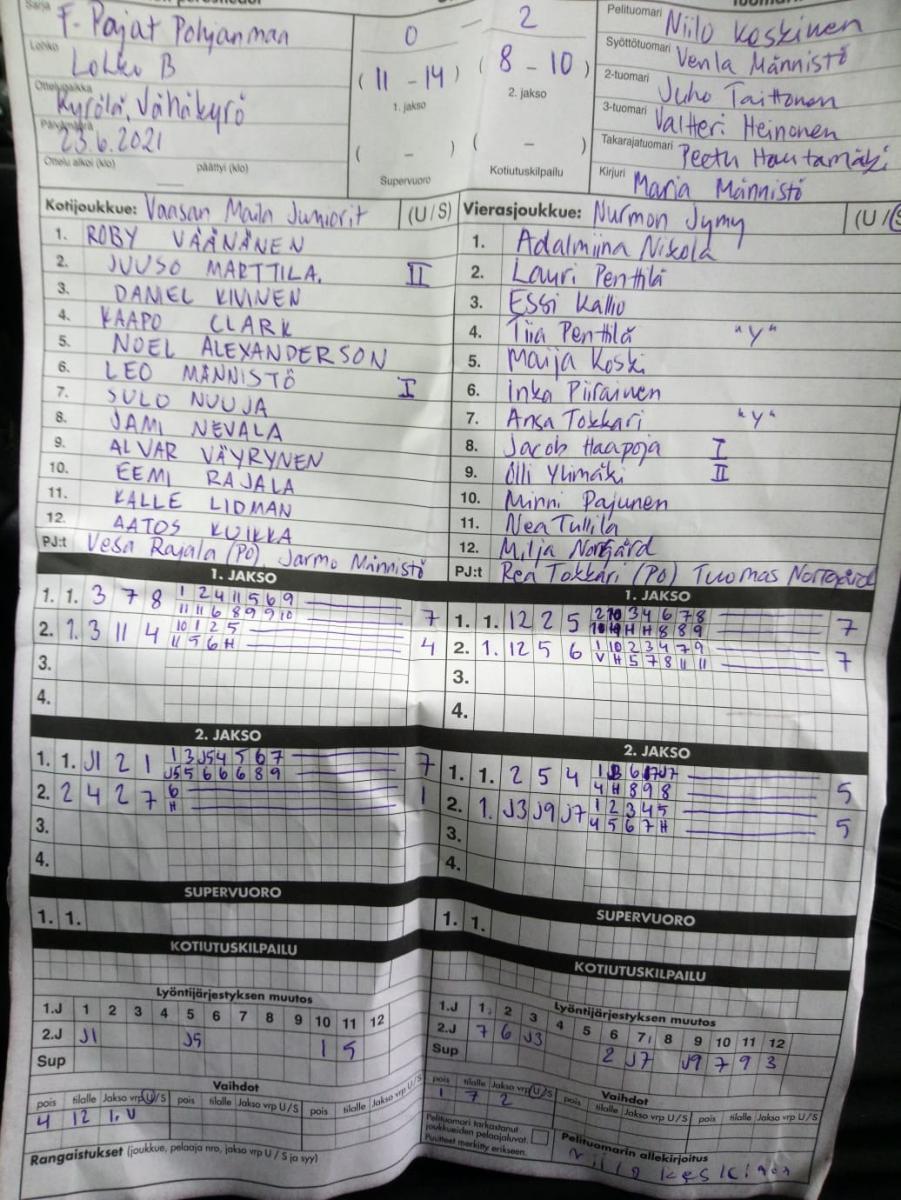 Sarja F-Pojat Pohjanmaa
Lohko Lohko B
Ottelupaikka Kyrölä, Vähäkyrö
Päivämäärä 23.6.2021
Ottelu alkoi (klo) päättyi (klo)
0 - 2
(11 - 14) (8 - 10)
1. jakso 2. jakso
( - ) ( - )
Supervuoro Kotiutuskilpailu
Pelituomari Niilo Koskinen
Syöttötuomari Venla Männistö
2-tuomari Juho Taittonen
3-tuomari Valtteri Heinonen
Takarajatuomari Peetu Hautamäki
Kirjuri Maria Männistö
Kotijoukkue: Vaasan Maila Juniorit (U/S)
1. ROBY VÄÄNÄNEN
2. JUUSO MARTTILA. II
3. DANIEL KIVINEN
4. KAAPO CLARK
5. NOEL ALEXANDERSON
6. LEO MÄNNISTÖ I
7. SULO NUUJA
8. JAMI NEVALA
9. ALVAR VÄYRYNEN
10. EEMI RAJALA
11. KALLE LIDMAN
12. AATOS KUIKKA
PJ:t Vesa Rajala (PO), Jarmo Männistö
Vierasjoukkue: Nurmon Jymy (U/S
1. Adalmiina Nikola
2. Lauri Penttilä
3. Essi Kallio
4. Tiia Penttilä "Y"
5. Maija Koski
6. Inka Piirainen
7. Ansa Tokkari "Y"
8. Jacob Haapoja I
9. Olli Ylimäki II
10. Minni Pajunen
11. Nea Tullila
12. Milja Norrgård
PJ:t Rea Tokkari (PO) Tuomas Norrgård
1. JAKSO
1. 1. 3 7 8 1 2 4 11 5 6 9 7
11 11 6 8 9 9 10
2. 1. 3 11 4 10 1 2 5 4
11 5 6 H
3.
4.
1. JAKSO
1. 1. 12 2 5 2 10 3 4 6 7 8 7
H H 8 8 9
2. 1. 12 5 6 1 10 2 3 4 7 9 7
V H 5 7 8 11 11
3.
4.
2. JAKSO
1. 1. J1 2 1 1 3 J5 4 5 6 7 7
J5 5 6 6 6 8 9
2. 2 4 2 7 6 1
H
3.
4.
2. JAKSO
1. 1. 2 5 4 5
4 H 8 9 8
2. 1. J3 J9 J7 1 2 3 4 5 5
4 5 6 7 H
3.
4.
SUPERVUORO
1. 1.
SUPERVUORO
1. 1.
KOTIUTUSKILPAILU
KOTIUTUSKILPAILU
Lyöntijärjestyksen muutos
1.J 1 2 3 4 5 6 7 8 9 10 11 12
2.J J1 J5 1 5
Sup
Lyöntijärjestyksen muutos
1.J 1 2 3 4 5 6 7 8 9 10 11 12
2.J 7 6 J3 2 J7 J9 7 9 3
Sup
Vaihdot
pois tilalle Jakso vrp U/S pois tilalle Jakso vrp U/S pois tilalle Jakso vrp U/S
4 12 1. U
Vaihdot
pois tilalle Jakso vrp U/S pois tilalle Jakso vrp U/S pois tilalle Jakso vrp U/S
1 7 2
Rangaistukset (joukkue, pelaaja nro, jakso vrp U/S ja syy)
Pelituomari tarkastanut
joukkueiden pelaajaluvat.
Puutteet merkitty erikseen.
Pelituomarin allekirjoitus
Niilo Koskinen